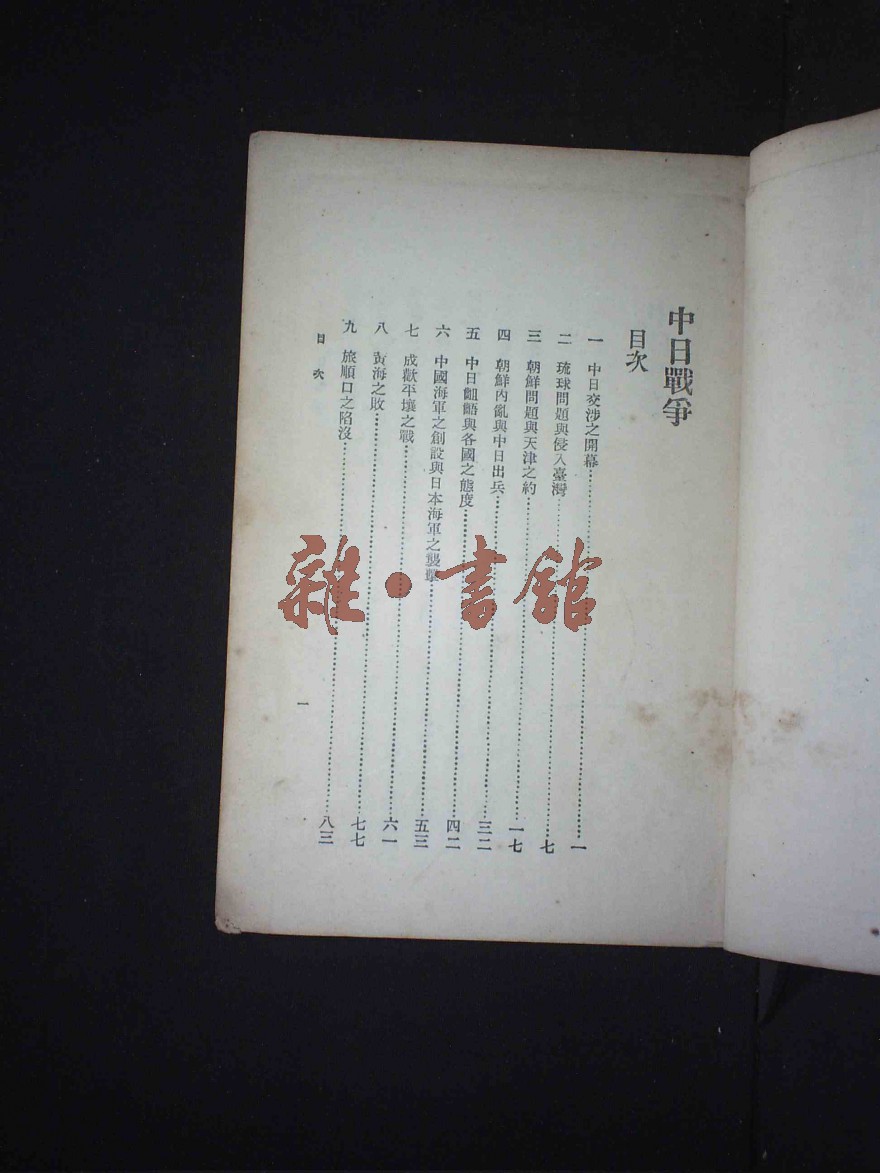 中日戰爭
目次
一 中日交涉之開幕……一
二 琉球問題與侵入臺灣……七
三 朝鮮問題與天津之約……一七
四 朝鮮內亂與中日出兵……三二
五 中日齟齬與各國之態度……四二
六 中國海軍之創設與日本海軍之襲擊……五三
七 成歡平壤之戰……六一
八 黃海之敗……七七
九 旅順口之陷沒……八三
目次
一
雜·書館